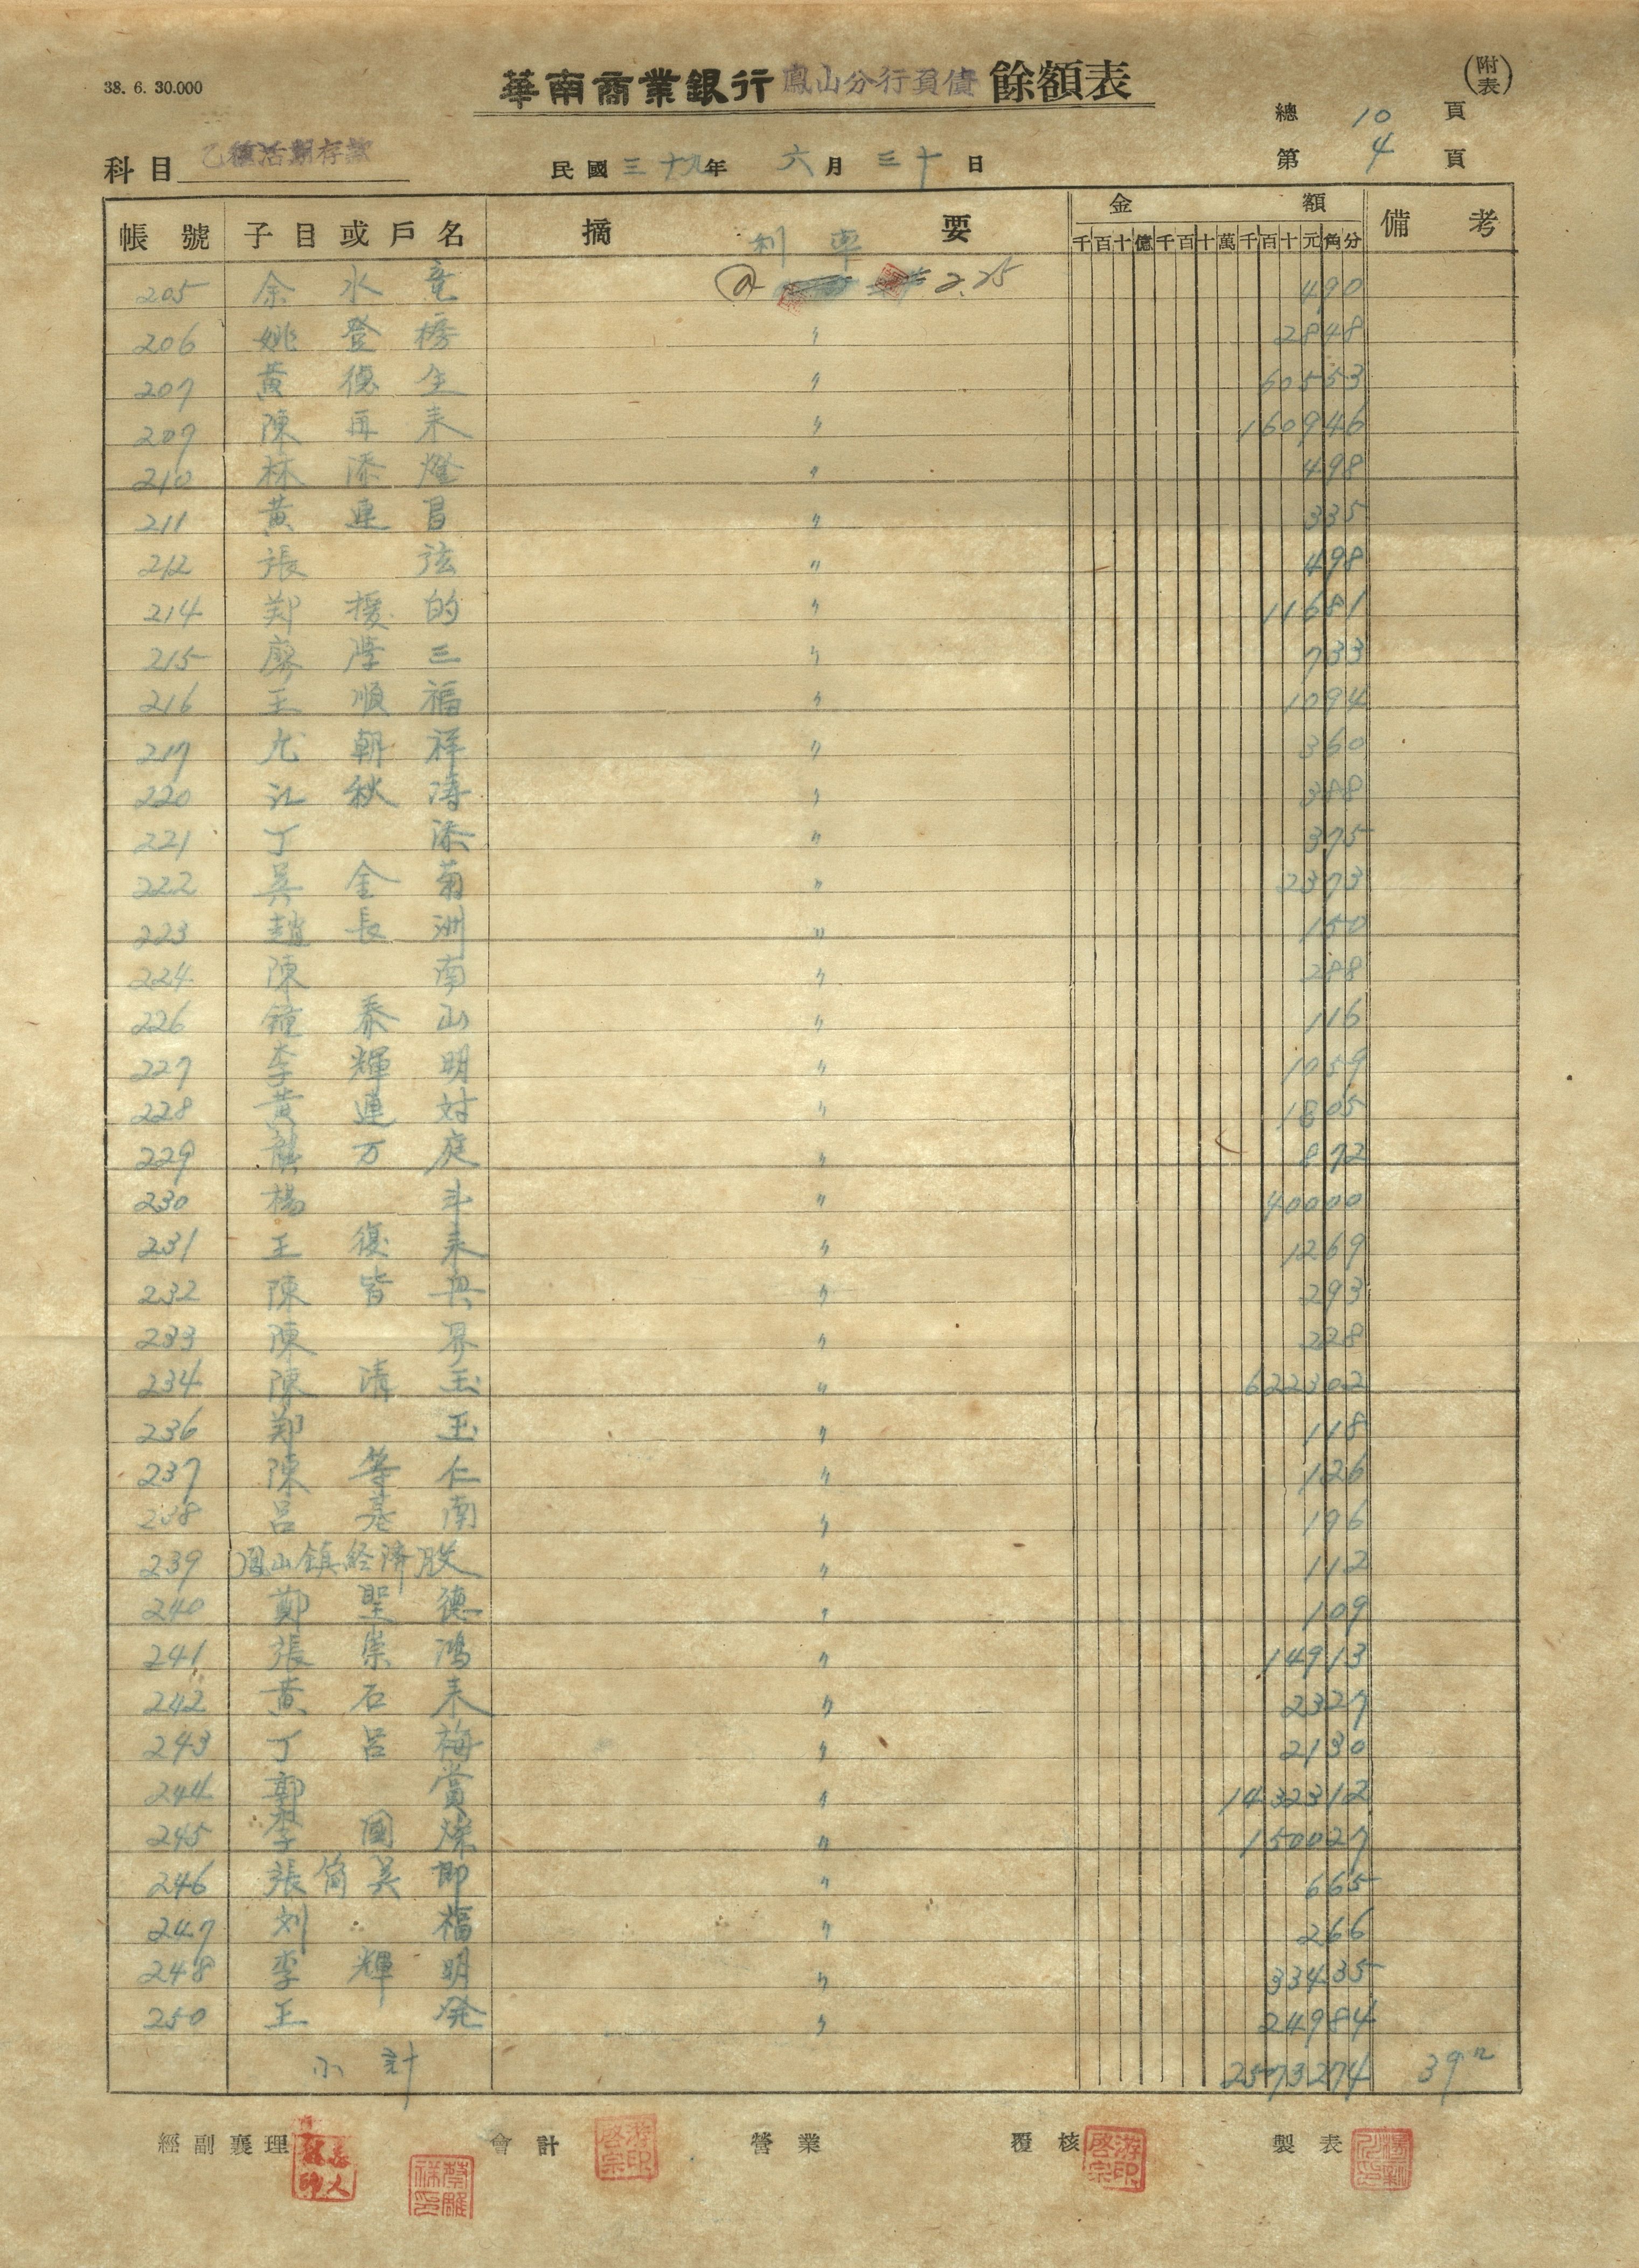 38. 6. 30.000
華南商業銀行 鳳山分行負債 餘額表
(附表)
總 10 頁
第 4 頁
科目 乙種活期存款
民國 三十九年 六月 三十日
帳號 子目或戶名 摘要 金額 備考
利率
千百十億千百十萬千百十元角分
205 余水竜 @ 2.25 490
206 姚登榜 〃 2848
207 黃德全 〃 60553
209 陳再来 〃 160946
210 林添燈 〃 498
211 黃連昌 〃 335
212 張弦 〃 498
214 郑援的 〃 11681
215 廖陞三 〃 733
216 王順福 〃 1094
217 尤朝祥 〃 360
220 江秋濤 〃 388
221 丁添 〃 375
222 吳金菊 〃 2373
223 趙長洲 〃 150
224 陳南 〃 288
226 鐘泰山 〃 116
227 李輝明 〃 1059
228 黃連対 〃 1805
229 万庭 〃 872
230 楊斗 〃 40000
231 王復来 〃 1269
232 陳皆 〃 293
233 陳界 〃 228
234 陳清玉 〃 622302
236 郑玉 〃 118
237 陳等仁 〃 126
238 呂基南 〃 196
239 鳳山鎮経済股 〃 112
240 鄭聖德 〃 109
241 張崇鴻 〃 14913
242 黃石来 〃 2327
243 丁呂梅 〃 2130
244 郭賞 〃 1432312
245 李國燦 〃 150027
246 張簡美 〃 665
247 刘福 〃 266
248 李輝明 〃 33435
250 王発 〃 24984
小計 2573274 39
經副襄理 會計 營業 覆核 製表
游啓宗印
游啓宗印